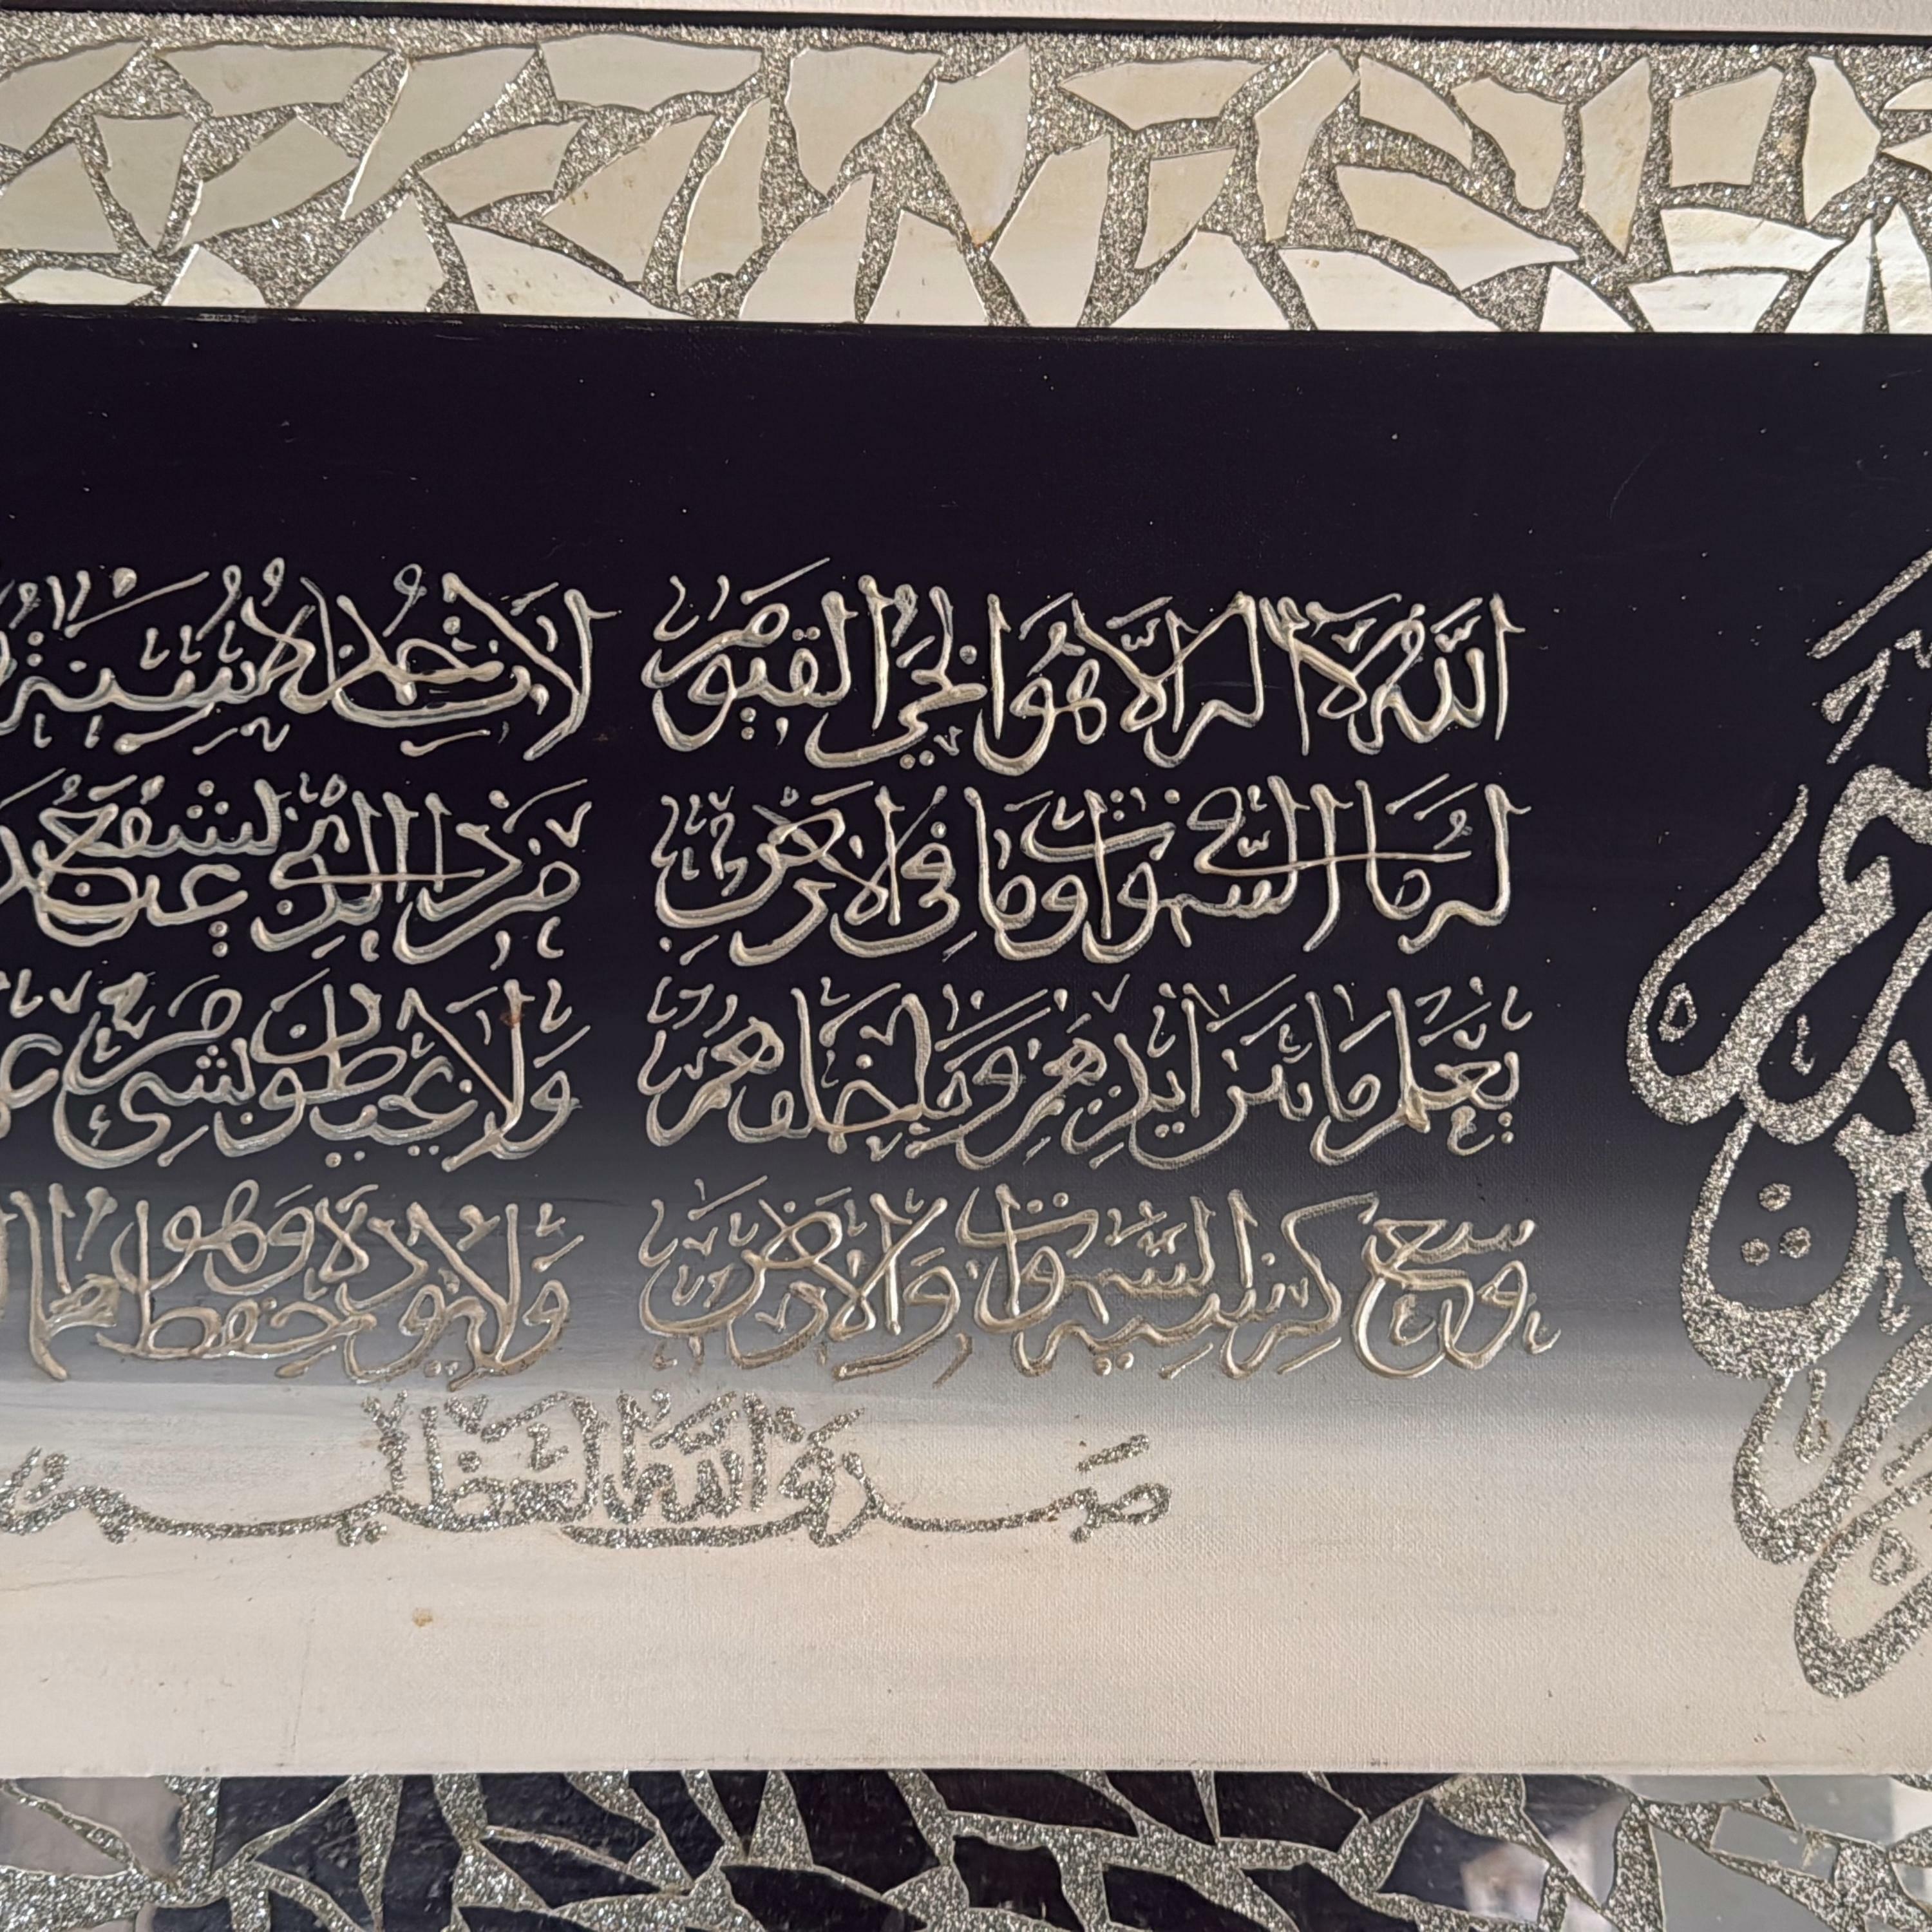 اللَّهُ لَا إِلَٰهَ إِلَّا هُوَ الْحَيُّ الْقَيُّومُ لَا تَأْخُذُهُ سِنَةٌ
لَهُ مَا فِي السَّمَٰوَاتِ وَمَا فِي الْأَرْضِ مَنْ ذَا الَّذِي يَشْفَعُ عِنْدَ
يَعْلَمُ مَا بَيْنَ أَيْدِيهِمْ وَمَا خَلْفَهُمْ وَلَا يُحِيطُونَ بِشَيْءٍ
وَسِعَ كُرْسِيُّهُ السَّمَٰوَاتِ وَالْأَرْضَ وَلَا يَئُودُهُ حِفْظُهُمَا وَهُوَ
صَدَقَ اللَّهُ الْعَظِيمُ